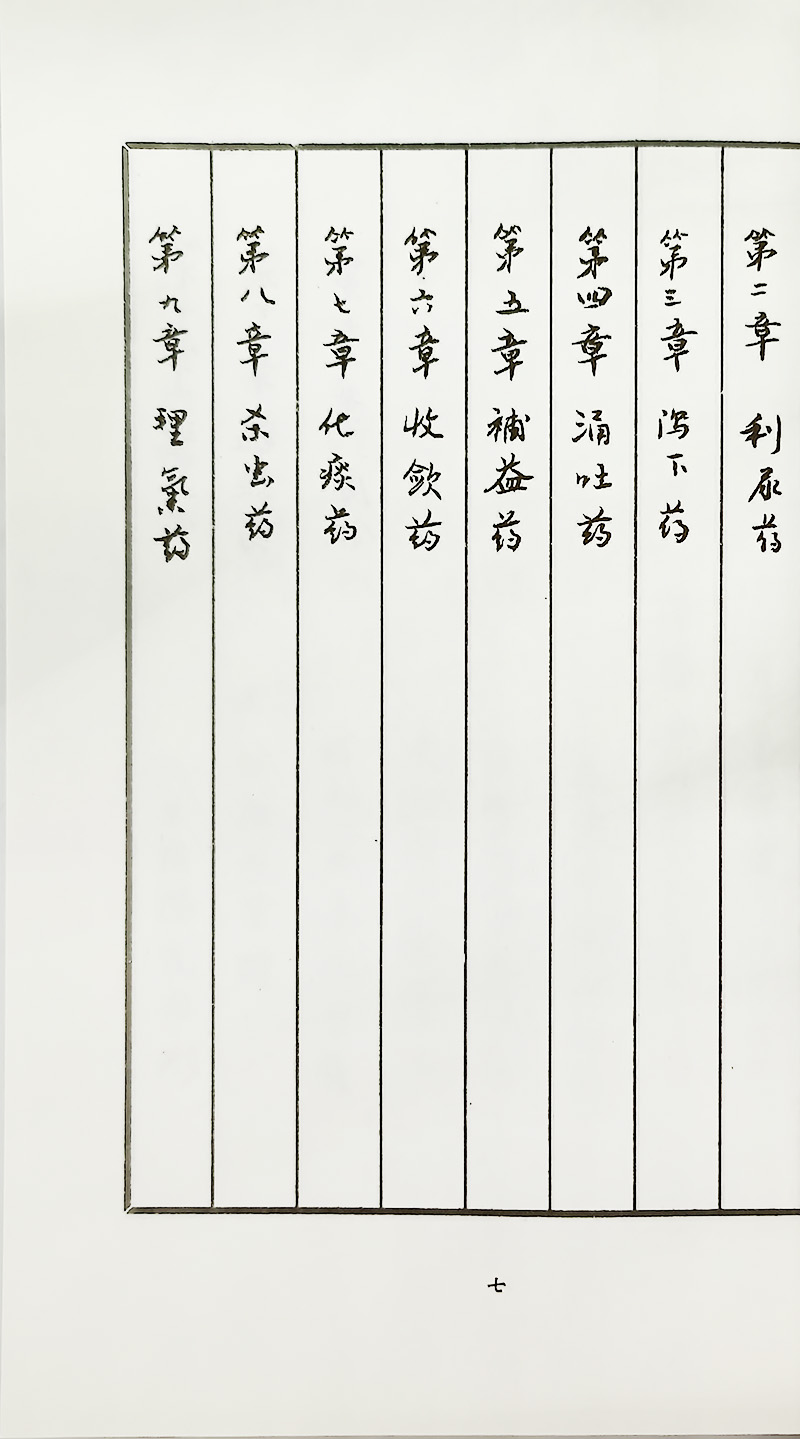 第二章 利尿药
第三章 泻下药
第四章 涌吐药
第五章 補益药
第六章 收歛药
第七章 化痰药
第八章 杀虫药
第九章 理氣药
七